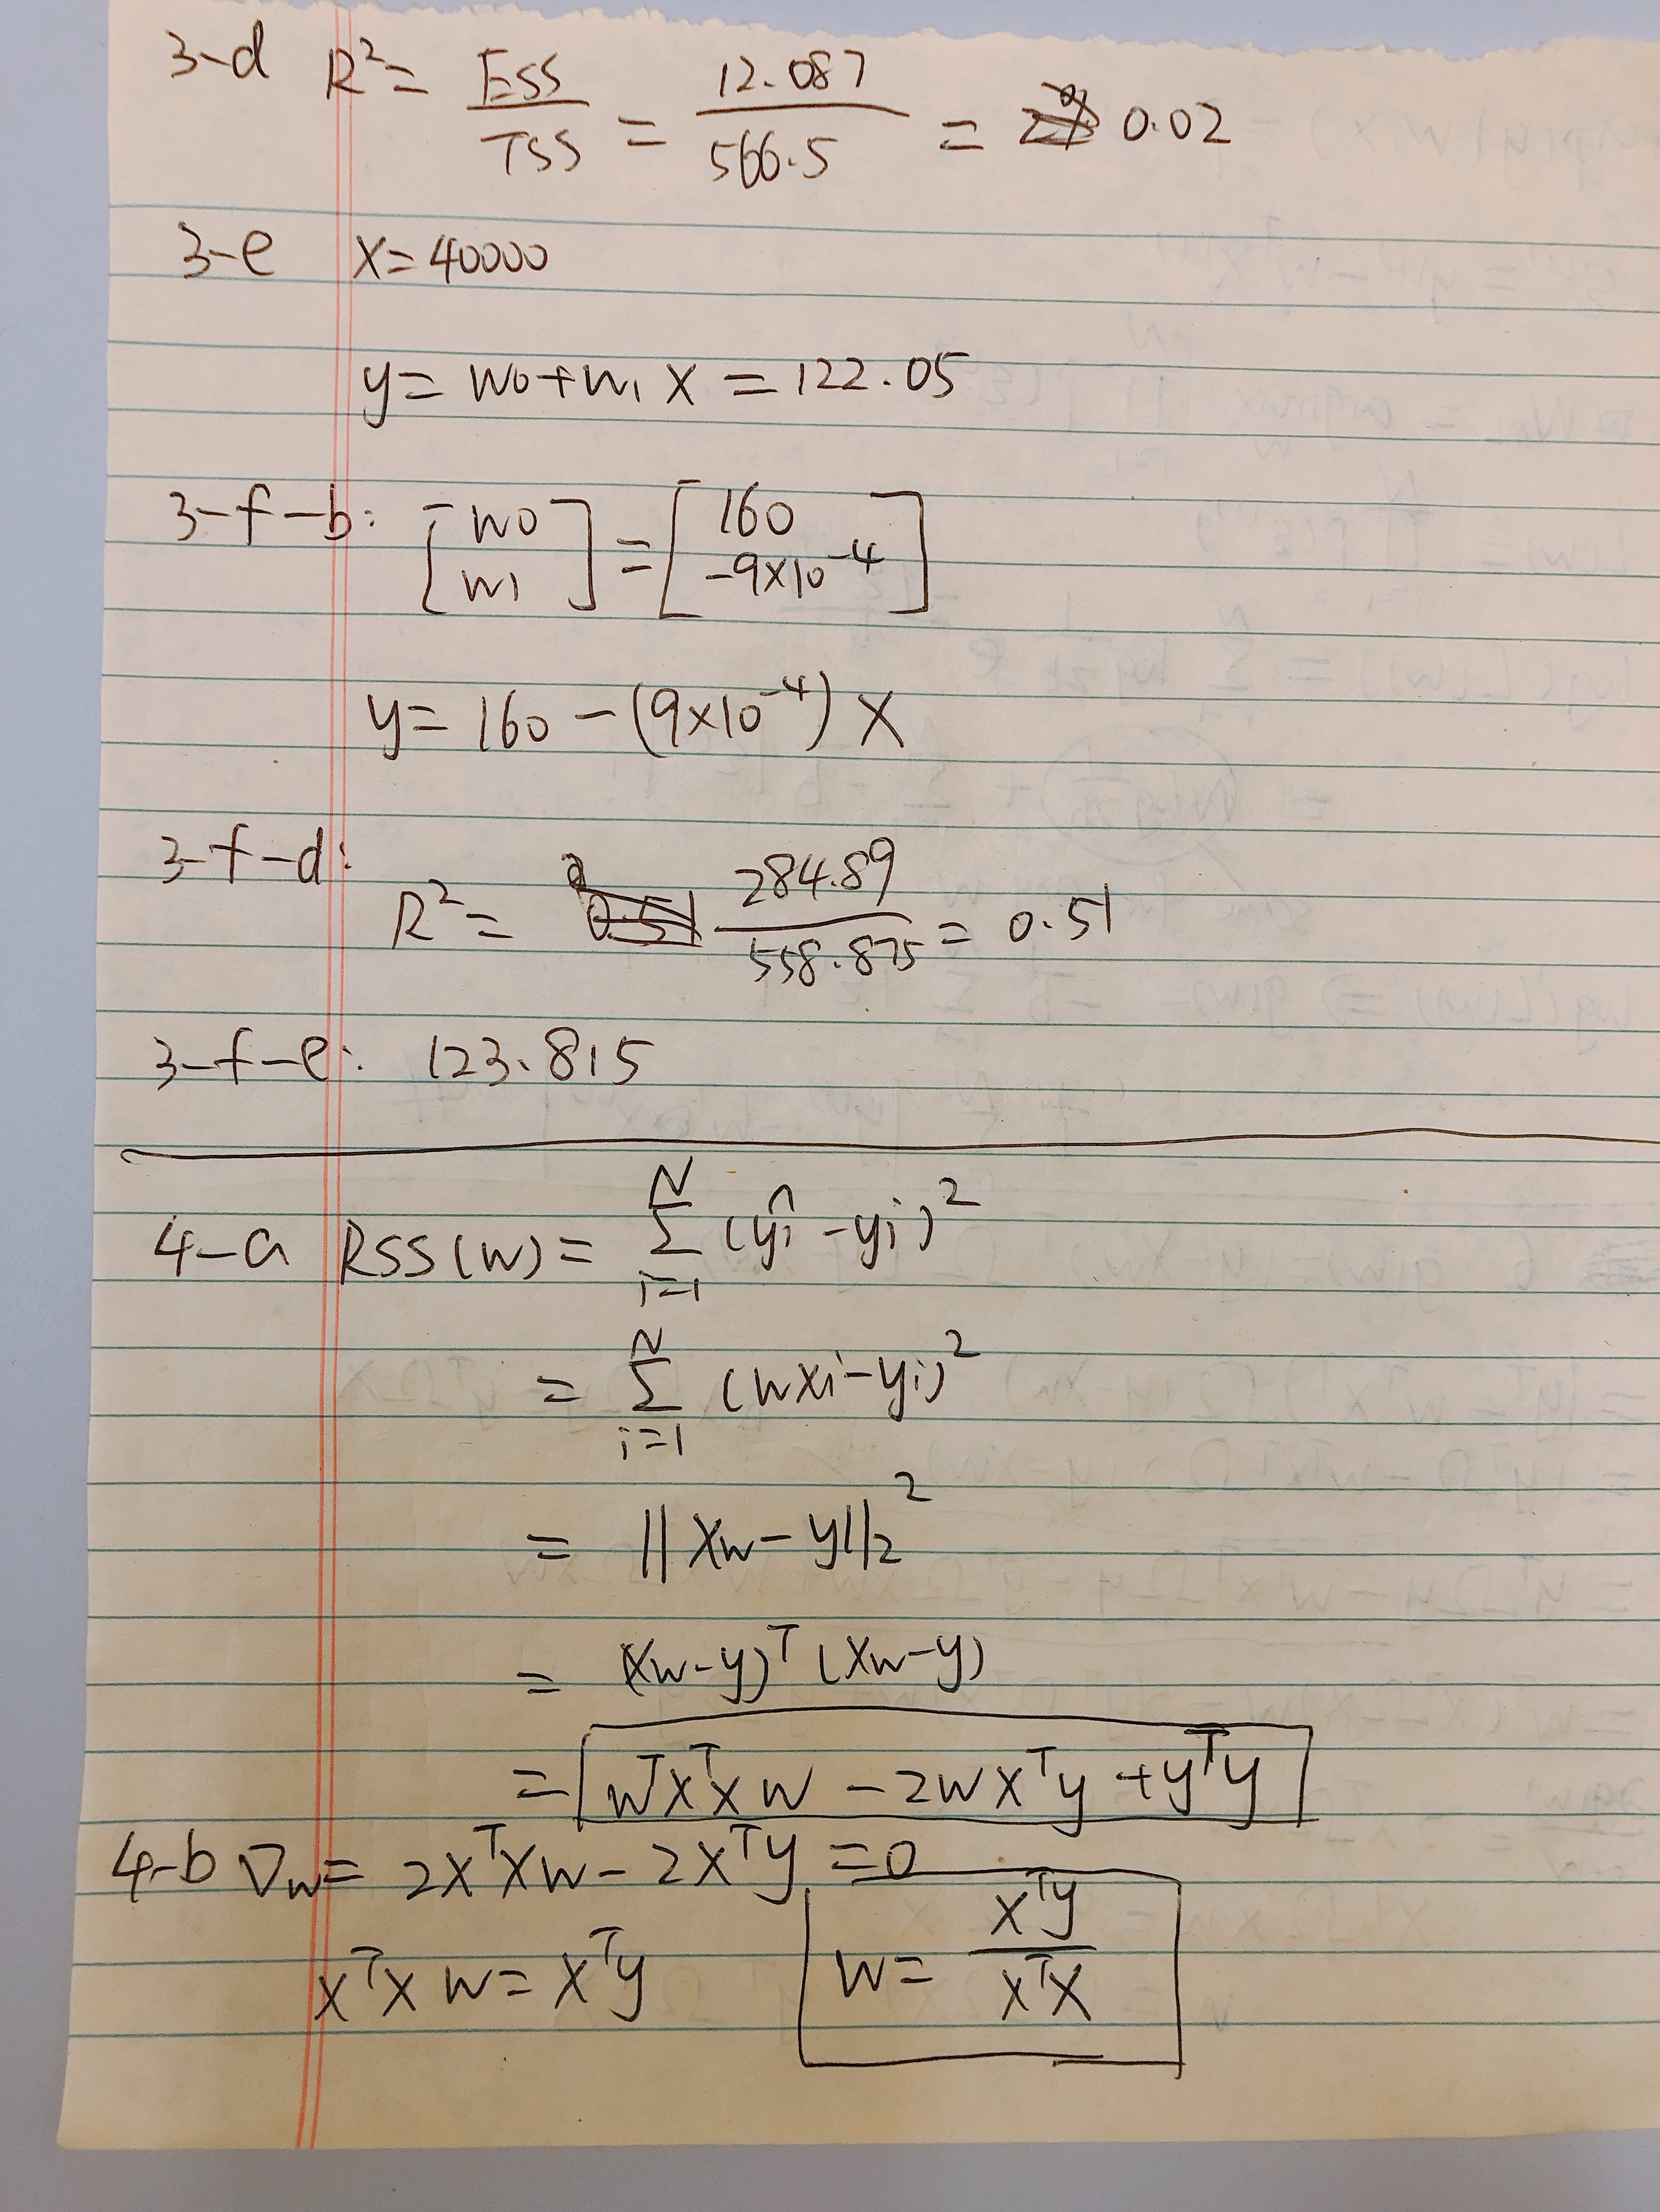 3-d R² = ESS/TSS = 12.087/566.5 = 0.02
3-e x = 40000
y = w0 + w1 x = 122.05
3-f-b: [w0 w1] = [160 -9×10^-4]
y = 160 - (9×10^-4) x
3-f-d:
R² = 284.89/558.875 = 0.51
3-f-e: 123.815
4-a RSS(w) = Σ_{i=1}^{N} (ŷi - yi)²
= Σ_{i=1}^{N} (wxi - yi)²
= ||Xw - y||₂²
= (Xw - y)^T (Xw - y)
= w^T X^T X w - 2wX^T y + y^T y
4-b ∇w = 2X^T X w - 2X^T y = 0
X^T X w = X^T y
w = X^T y / X^T X